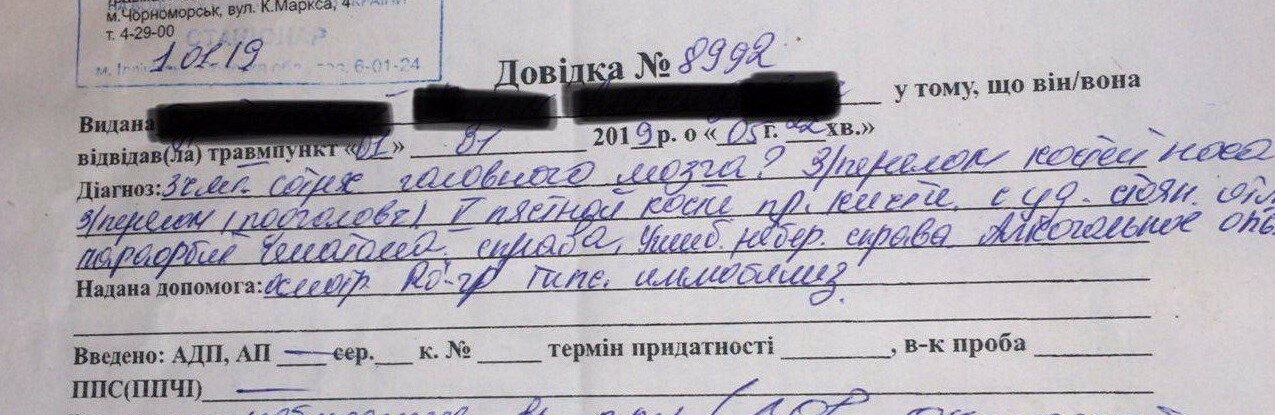 м.Чорноморськ, вул. К.Маркса, 4
т. 4-29-00
СТАЦІОНАР
1.01.19
6-01-24
Довідка № 8992
Видана у тому, що він/вона
відвідав(ла) травмпункт «01» 01 2019р. о «05г. 22хв.»
Діагноз: ЗЧМТ. сотряс головного мозга? З/перелом костей носа
З/перелом (подголовч) V пястной кости пр. кисти. с уд. стоян. отл
параорбит гематома справа, Ушиб. справа Алкогольное
Надана допомога: осмотр. Ro-гр Гипс. иммобилиз
Введено: АДП, АП сер. к. № термін придатності , в-к проба
ППС(ППЧІ)